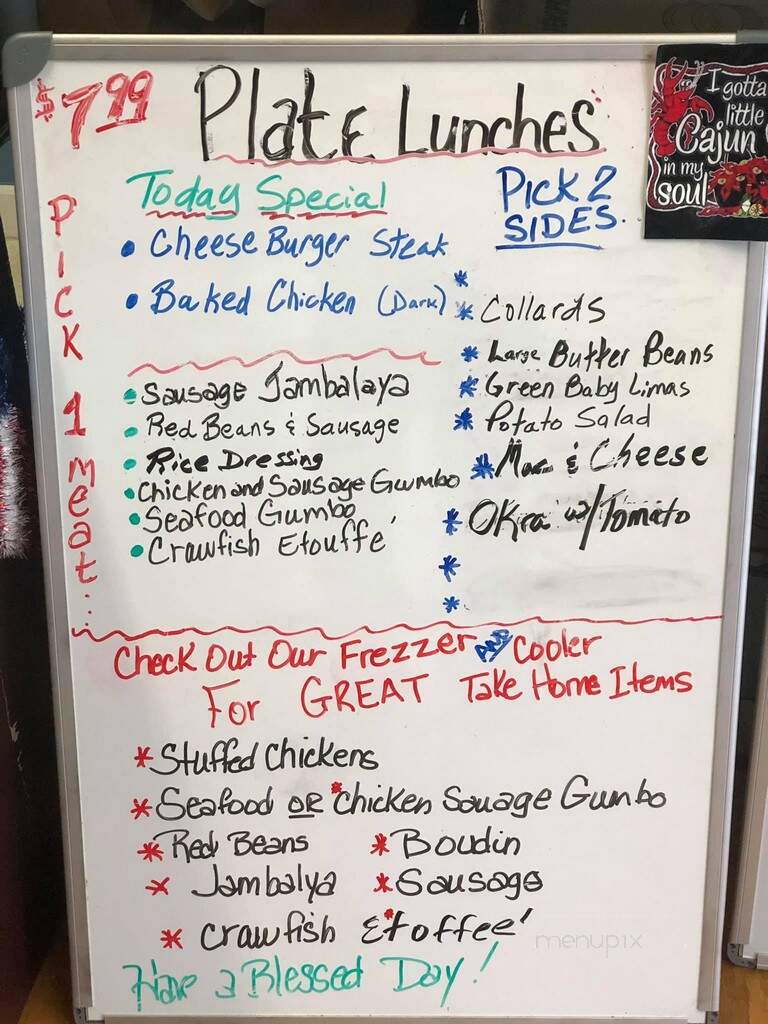 $7.99 Plate Lunches
PICK 1 meat...
Today Special
• Cheese Burger Steak
• Baked Chicken (Dark)
• Sausage Jambalaya
• Red Beans & Sausage
• Rice Dressing
• Chicken and Sausage Gumbo
• Seafood Gumbo
• Crawfish Etouffe'
PICK 2
SIDES.
*
* Collards
* Large Butter Beans
* Green Baby Limas
* Potato Salad
* Mac & Cheese
* Okra w/Tomato
*
*
I gotta
little
Cajun
in my
soul
Check Out Our Frezzer AND Cooler
For GREAT Take Home Items
* Stuffed Chickens
* Seafood OR * Chicken Sauage Gumbo
* Red Beans * Boudin
* Jambalya * Sausage
* Crawfish Etoffee'
Have a Blessed Day!
menupix